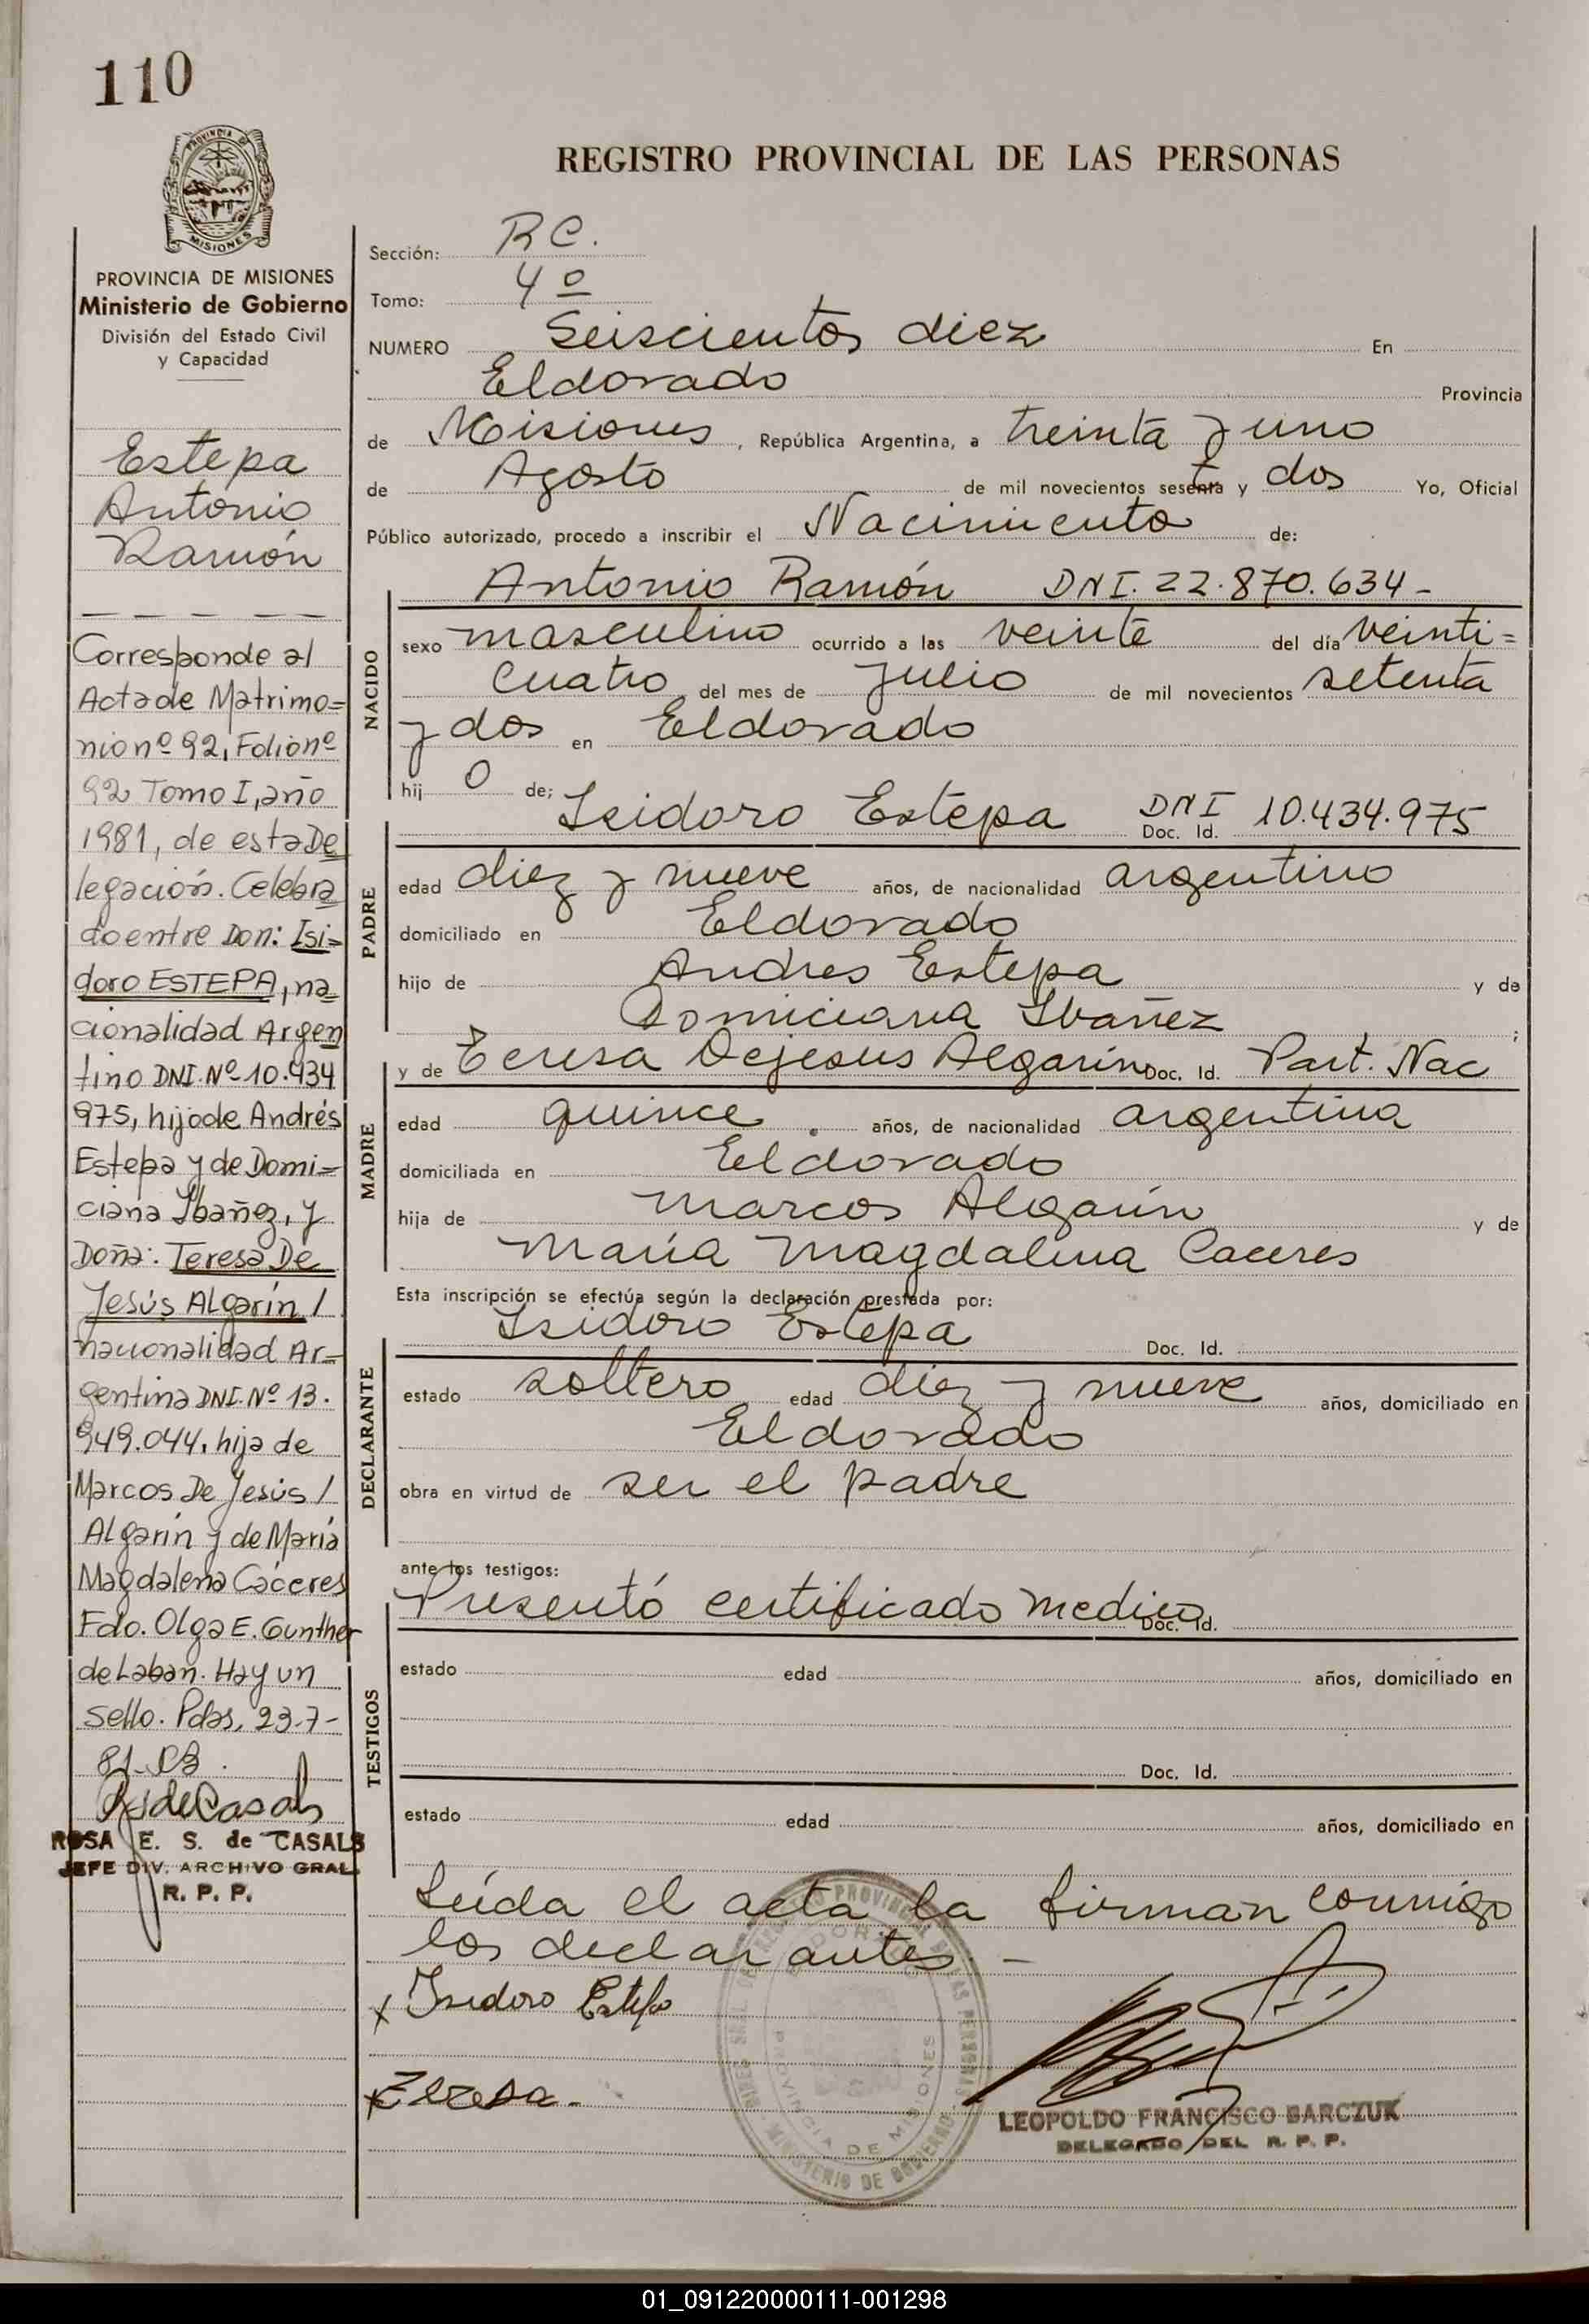 110
PROVINCIA DE
MISIONES
PROVINCIA DE MISIONES
Ministerio de Gobierno
División del Estado Civil
y Capacidad
Estepa
Antonio
Ramón
Corresponde al
Acta de Matrimo=
nio nº 92, Folio nº
92 Tomo I, año
1981, de esta De
legación. Celebra
do entre Don: Isi=
doro ESTEPA, na
cionalidad Argen
tino DNI. Nº 10.434
975, hijo de Andrés
Estepa y de Domi=
ciana Ibañez, y
Doña: Teresa De
Jesús Algarín /
nacionalidad Ar=
gentina DNI. Nº 13.
949.044, hija de
Marcos De Jesús /
Algarín y de María
Magdalena Cáceres
Fdo. Olga E. Gunther
de Laban. Hay un
Sello. Pdas, 23-7-
81-
ROSA E. S. de CASALS
JEFE DIV. ARCHIVO GRAL.
R. P. P.
REGISTRO PROVINCIAL DE LAS PERSONAS
Sección: R C.
Tomo: 4º
NUMERO Seiscientos diez En
Eldorado Provincia
de Misiones, República Argentina, a treinta y uno
de Agosto de mil novecientos sesenta y dos Yo, Oficial
Público autorizado, procedo a inscribir el Nacimiento de:
Antonio Ramón DNI. 22.870.634-
NACIDO
sexo masculino ocurrido a las veinte del día veinti=
cuatro del mes de julio de mil novecientos setenta
y dos en Eldorado
hij o de;
Isidoro Estepa DNI Doc. Id. 10.434.975
PADRE
edad diez y nueve años, de nacionalidad argentino
domiciliado en Eldorado
hijo de Andres Estepa y de
Domiciana Ibañez ;
y de Teresa Dejesus Algarín Doc. Id. Part. Nac
MADRE
edad quince años, de nacionalidad argentina
domiciliada en Eldorado
hija de Marcos Algarín y de
María Magdalena Caceres
Esta inscripción se efectúa según la declaración prestada por:
Isidoro Estepa Doc. Id.
DECLARANTE
estado soltero edad diez y nueve años, domiciliado en
Eldorado
obra en virtud de ser el padre
ante los testigos:
Presentó certificado medico Doc. Id.
TESTIGOS
estado edad años, domiciliado en
Doc. Id.
estado edad años, domiciliado en
Leída el acta la firman conmigo
los declarantes. -
x Isidoro Estepa
x Teresa.
LEOPOLDO FRANCISCO BARCZUK
DELEGADO DEL R. P. P.
PROVINCIA DE MISIONES
MINISTERIO DE GOBIERNO
01_091220000111-001298